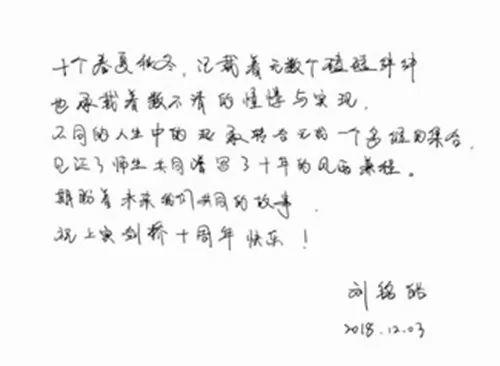 十个春夏秋冬，记载着无数个碰碰绊绊
也承载着数不清的憧憬与实现，
不同的人生中的起承转合 一个多 的集合，
见证了师生共同 写了十年的风雨兼程。
期盼着未来我们共同的故事，
祝上实剑桥十周年快乐！
刘铭皓
2018.12.03